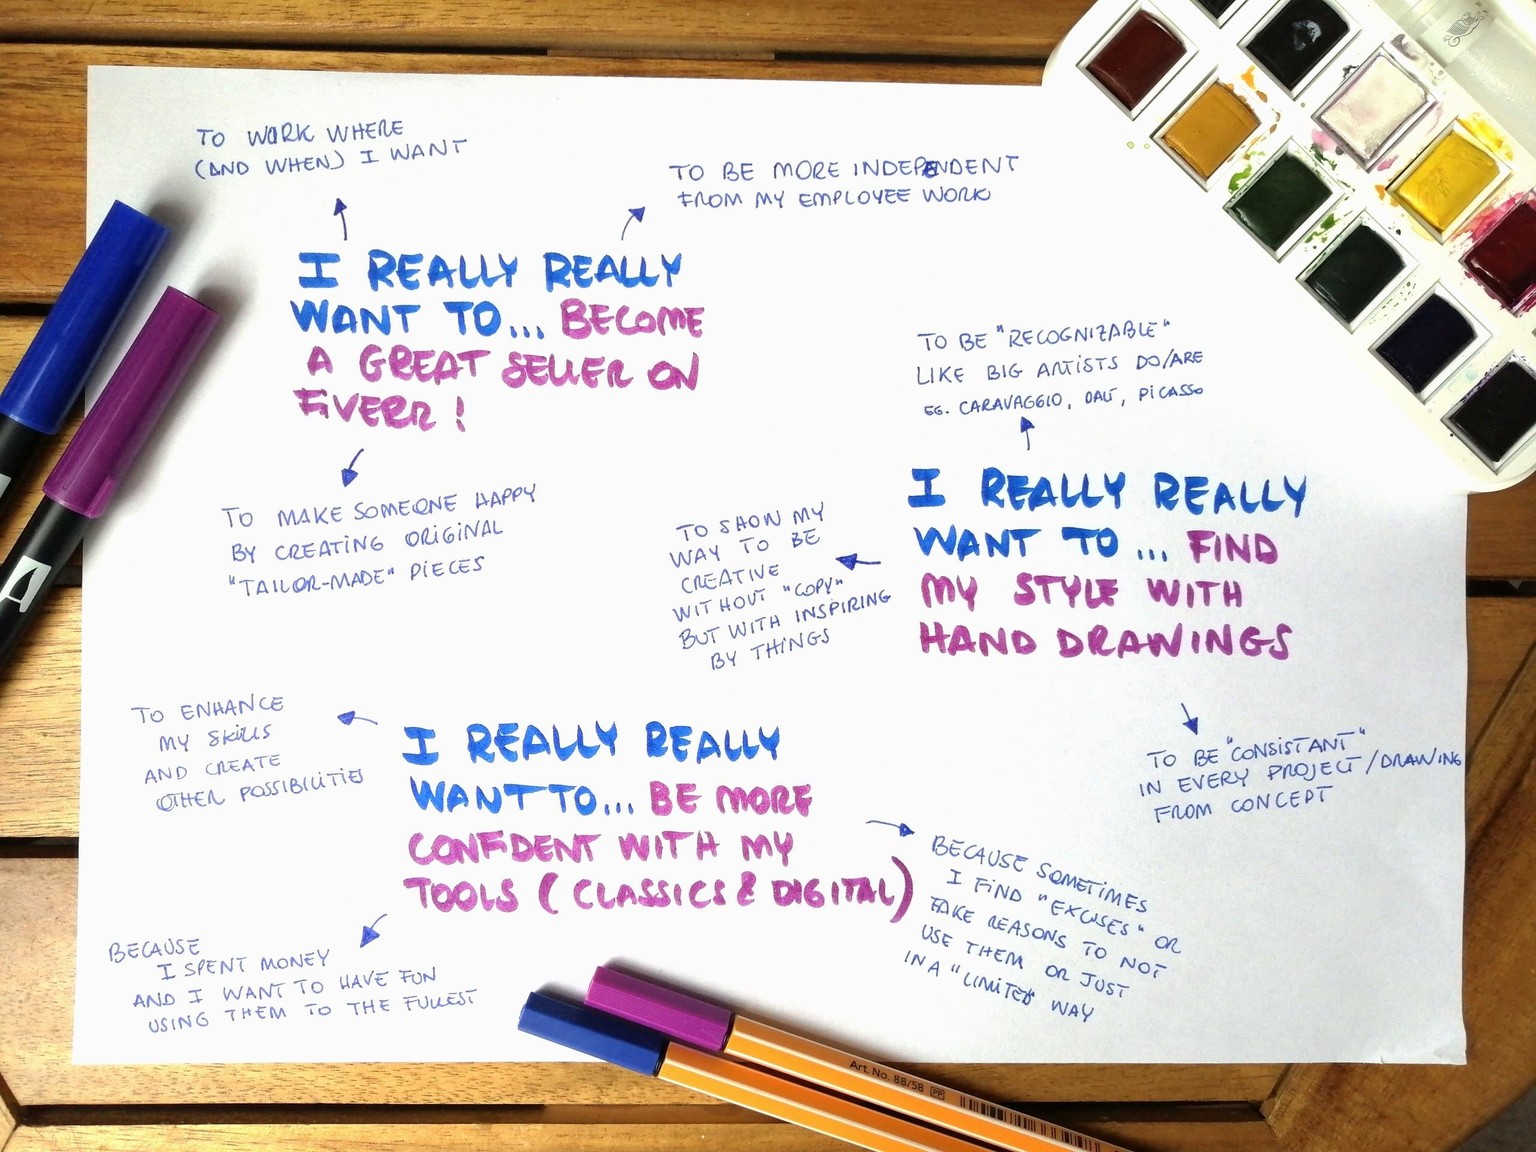 TO WORK WHERE
(AND WHEN) I WANT
TO BE MORE INDEPENDENT
FROM MY EMPLOYEE WORK
I REALLY REALLY
WANT TO... BECOME
A GREAT SELLER ON
FIVERR!
TO MAKE SOMEONE HAPPY
BY CREATING ORIGINAL
"TAILOR-MADE" PIECES
TO BE "RECOGNIZABLE"
LIKE BIG ARTISTS DO/ARE
EG. CARAVAGGIO, DALÍ, PICASSO
I REALLY REALLY
WANT TO... FIND
MY STYLE WITH
HAND DRAWINGS
TO SHOW MY
WAY TO BE
CREATIVE
WITHOUT "COPY"
BUT WITH INSPIRING
BY THINGS
TO BE "CONSISTANT"
IN EVERY PROJECT/DRAWING
FROM CONCEPT
I REALLY REALLY
WANT TO... BE MORE
CONFIDENT WITH MY
TOOLS (CLASSICS & DIGITAL)
TO ENHANCE
MY SKILLS
AND CREATE
OTHER POSSIBILITIES
BECAUSE
I SPENT MONEY
AND I WANT TO HAVE FUN
USING THEM TO THE FULLEST
BECAUSE SOMETIMES
I FIND "EXCUSES" OR
FAKE REASONS TO NOT
USE THEM OR JUST
IN A "LIMITED" WAY
Art. No. 88/58 PP
A